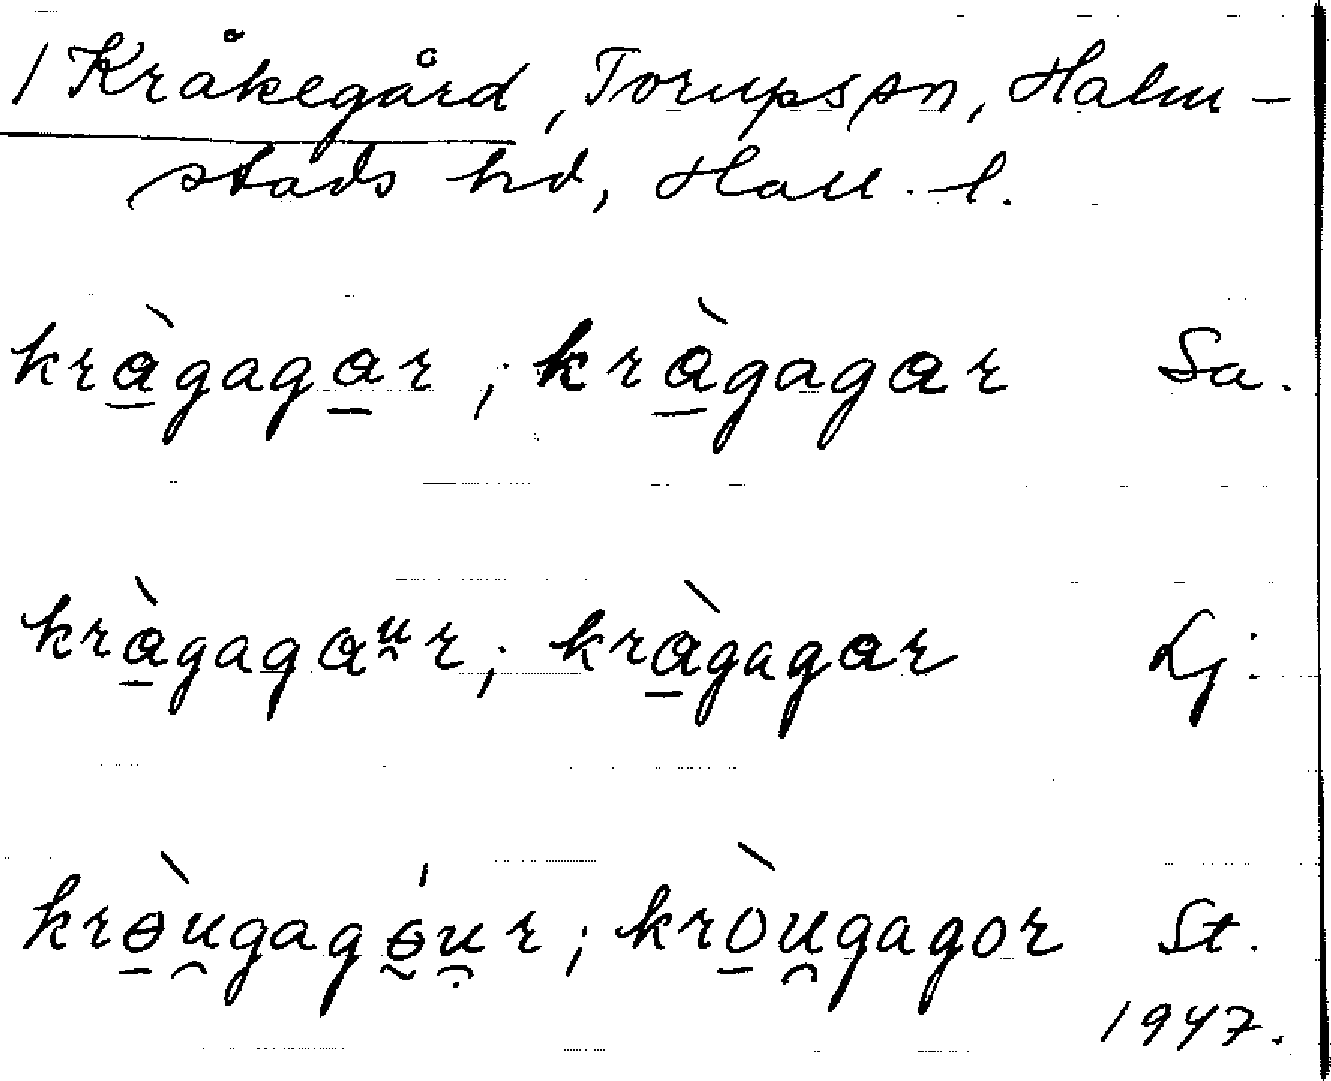 / Kråkegård, Torups sn, Halm-
stads hd, Hall. l.
krɑ̱̀gagɑ̱r; krɑ̱̀gagɑr Sa.
krɑ̱̀gagɑᵘ̯r; krɑ̱̀gagɑr Lj.
krɵ̱̀u̯gagɵ̰́u̯r; krò̱u̯gagor St.
1947.